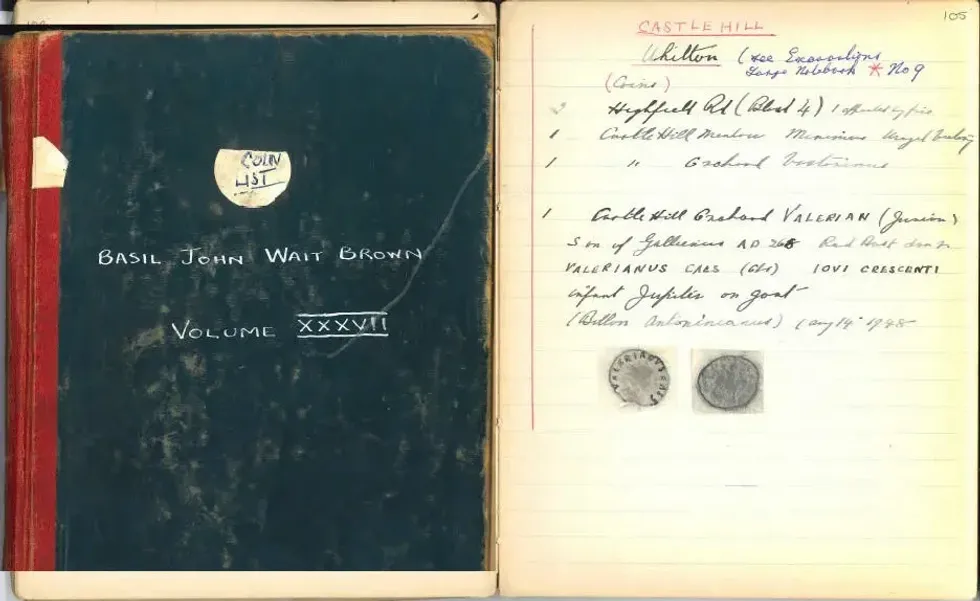 COIN
LIST
BASIL JOHN WAIT BROWN
VOLUME XXXVII
105
CASTLE HILL
Whitton (see Excavations
Large Notebook * No 9
(Coins)
2 Highfield Rd (Blast 4) 1 affected by fire
1 Castle Hill Meadow Minimus
1 " Orchard Victorinus
1 Castle Hill Orchard VALERIAN (Junior)
Son of Gallienus AD 268 Rad Bust
VALERIANUS CAES (Obv) IOVI CRESCENTI
infant Jupiter on goat
(Billon Antoninianus) (Aug 14 1948
VALERIANUS CAES